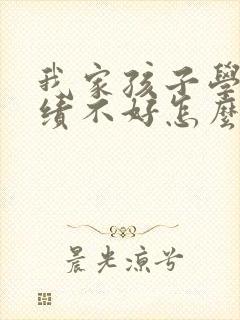 我家孩子學
績不好怎麼
晨光涼兮